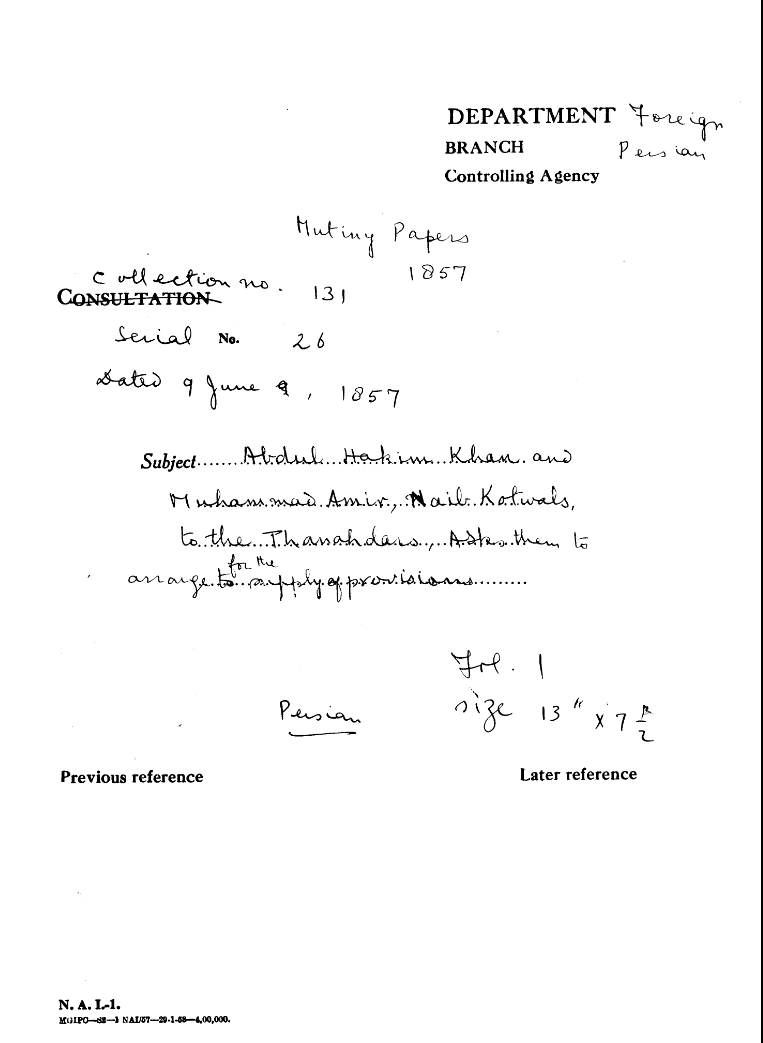 DEPARTMENT Foreign
BRANCH Persian
Controlling Agency
Mutiny Papers
1857
Collection no. 131
CONSULTATION
Serial No. 26
Dated 9 June 9, 1857
Subject........Abdul...Hakim..Khan. and
Muhammad.Amir.,.Naib.Kotwals,
to..the..Thanahdars..,.Asks..them to
for the
arrange.to..supply.of.provisions.........
Fol. 1
Persian
size 13" x 7
Previous reference
Later reference
N. A. I.-1.
MGIPC—S2—1 NAI/57—29-1-58—4,00,000.